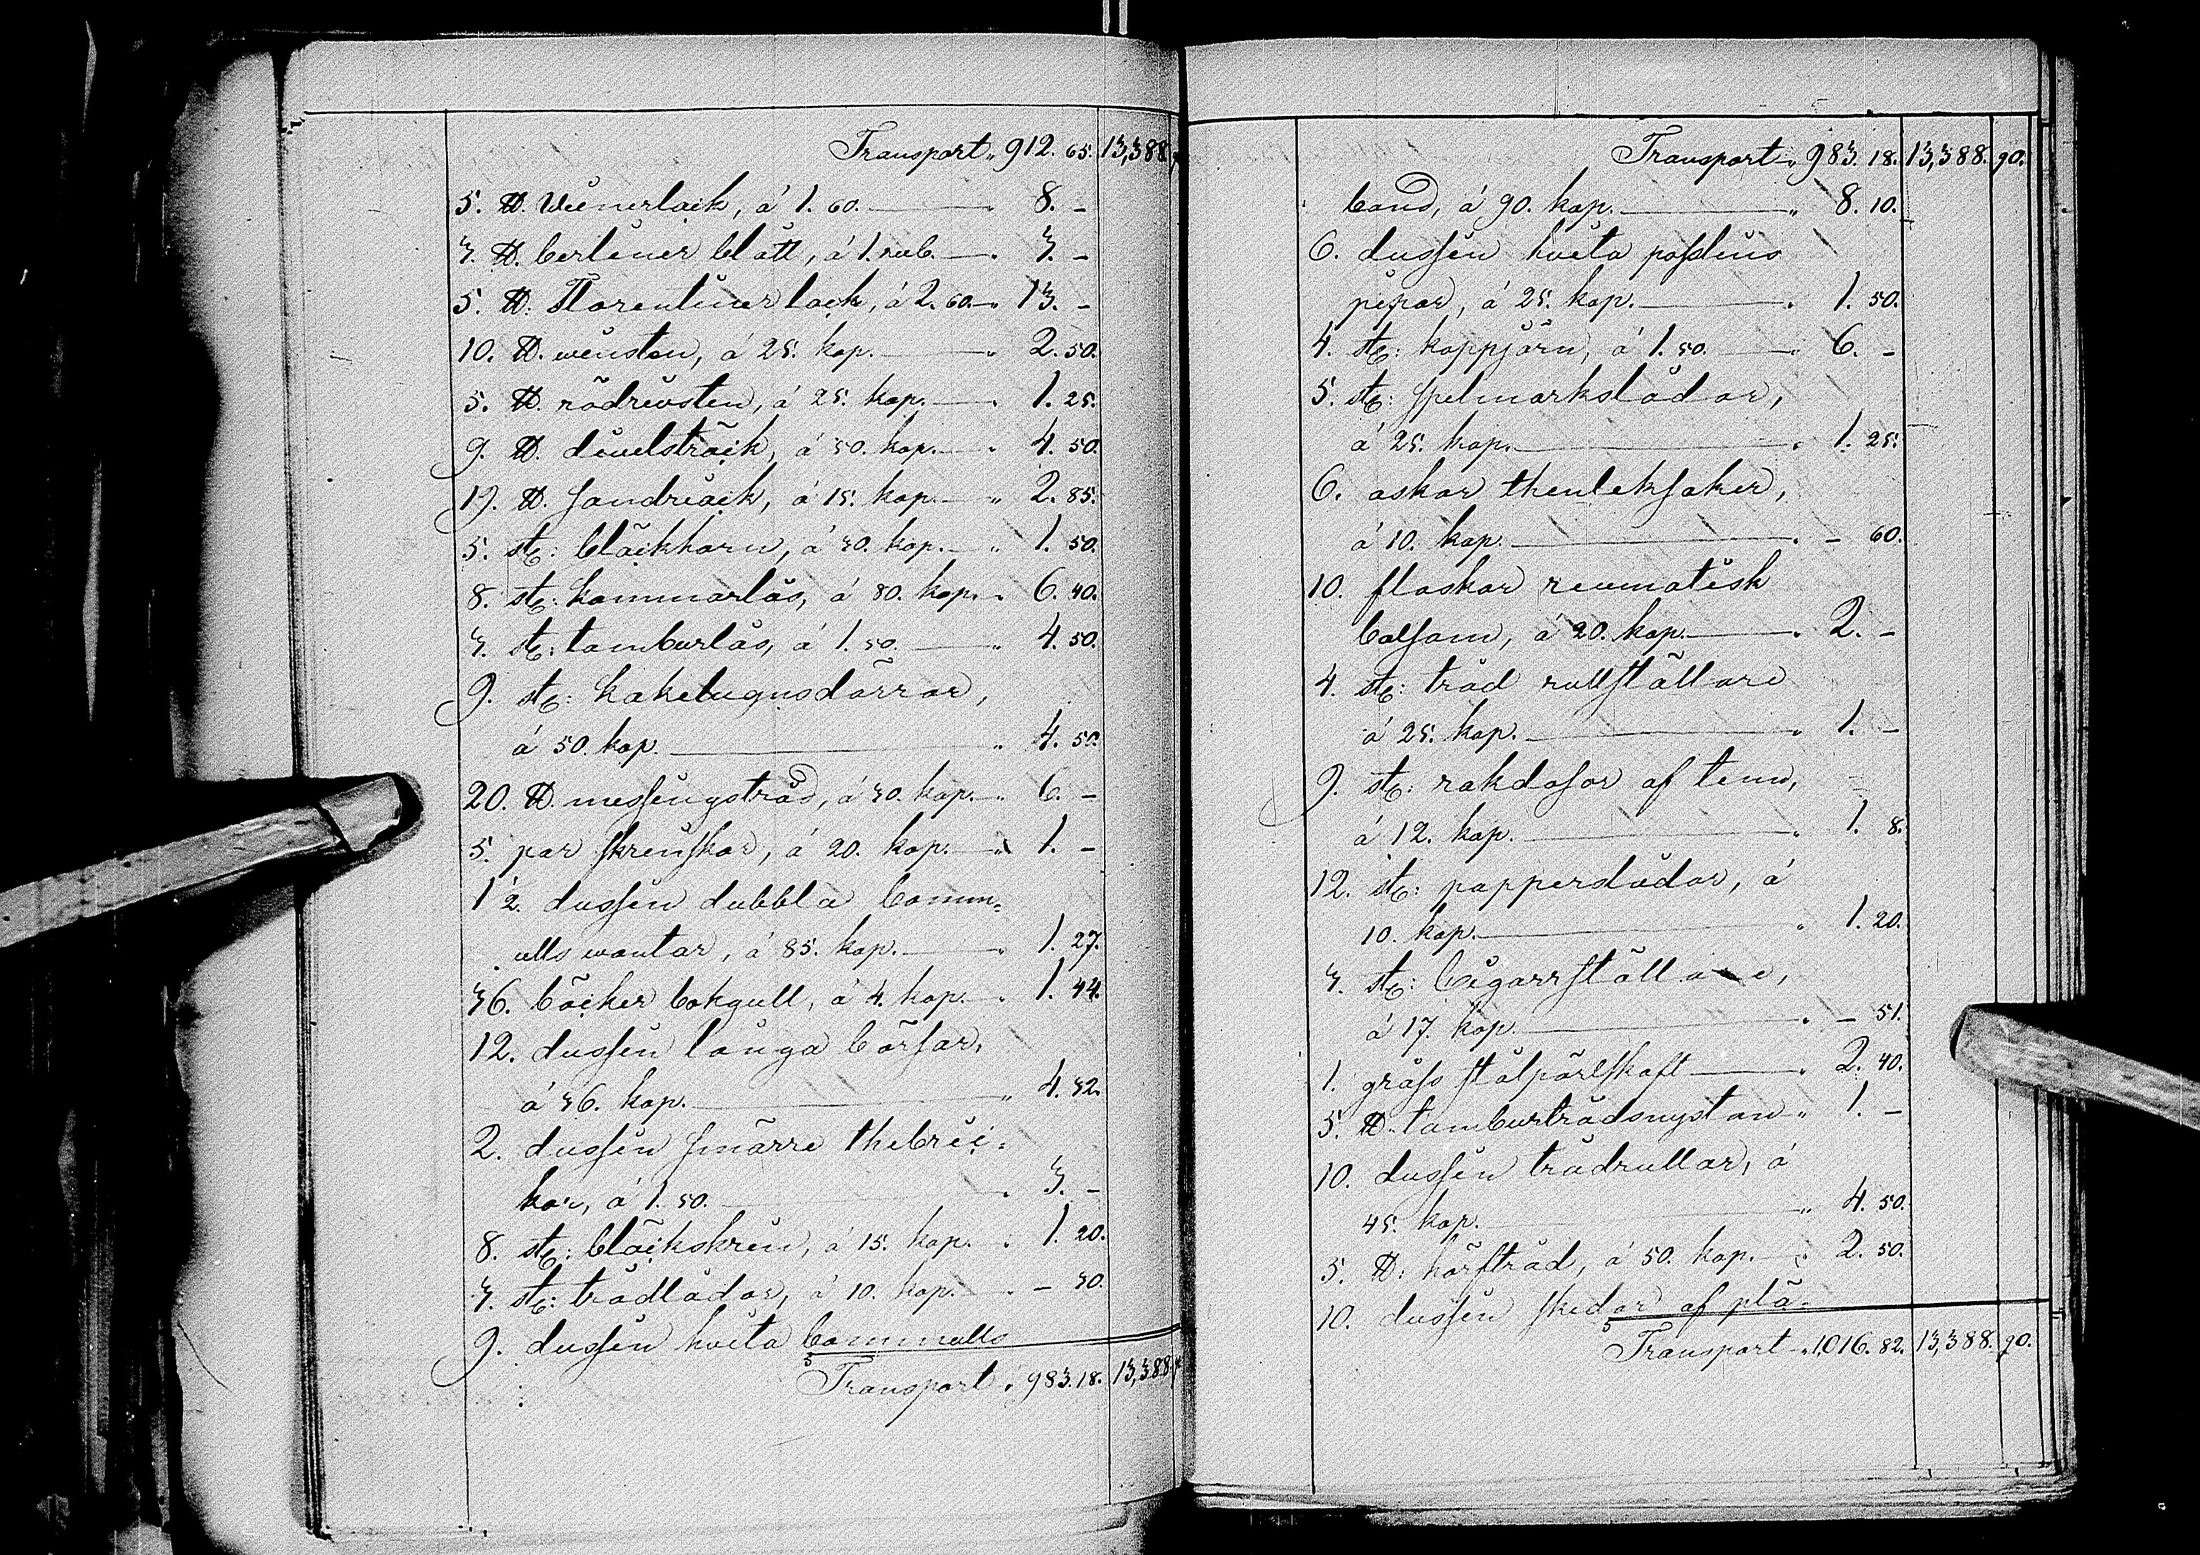 Transport „ 912. 65. 13,388
5. ℔. Wienerlack, á 1. 60. — „ 8. –
3. ℔. berliner blått, á 1. rub. — „ 3. –
5. ℔. Florentinerlack, á 2. 60. — „ 13. –
10. ℔. winsten, á 25. kop. — „ 2. 50.
5. ℔. rödrivsten, á 25. kop. — „ 1. 25.
9. ℔. divelsträck, á 50. kop. — „ 4. 50.
19. ℔. sandrack, á 15. kop. — „ 2. 85.
5. st: bläckhorn, á 30. kop. — „ 1. 50.
8. st: kammarlås, á 80. kop. „ 6. 40.
3. st: tamburlås, á 1. 50. — „ 4. 50.
9. st: kakelugnsdörrar,
á 50. kop. — „ 4. 50.
20. ℔. messingstråd, á 30. kop. — „ 6. –
5. par skrinskor, á 20. kop. — „ 1. –
1½. dussin dubbla bomm-
ulls wantar, á 85. kop. — „ 1. 27.
36. böcker bokgull, á 4. kop. — „ 1. 44.
12. dussin långa börsar,
á 36. kop. — „ 4. 32.
2. dussin smärre thebric-
kor, á 1. 50. — „ 3. –
8. st: bläckskrin, á 15. kop. „ 1. 20.
3. st: trädlådor, á 10. kop. „ – 30.
9. dussin hvita bommulls
Transport „ 983. 18. 13,388
Transport „ 983. 18. 13,388. 90.
band, á 90. kop. — „ 8. 10.
6. dussin hvita posslins
pipor, á 25. kop. — „ 1. 50.
4. st: koppjärn, á 1. 50. — „ 6. –
5. st: spelmarkslådor,
á 25. kop. — „ 1. 25.
6. askar thenleksaker,
á 10. kop. — „ – 60.
10. flaskor reumatisk
balsam, á 20. kop. — „ 2. –
4. st: tråd rullställare
á 25. kop. — „ 1. –
9. st: rakdosor af tenn,
á 12. kop. — „ 1. 8.
12. st: papperslådor, á
10. kop. — „ 1. 20.
3. st: Cigarrställare,
á 17. kop. — „ – 51.
1. gråss stålpärlskaft — „ 2. 40.
5. ℔. tamburtrådsnystan „ 1. –
10. dussin trådrullar, á
45. kop. — „ 4. 50.
5. ℔: hörftråd, á 50. kop. — „ 2. 50.
10. dussin skedar af plä-
Transport „ 1,016. 82. 13,388. 90.